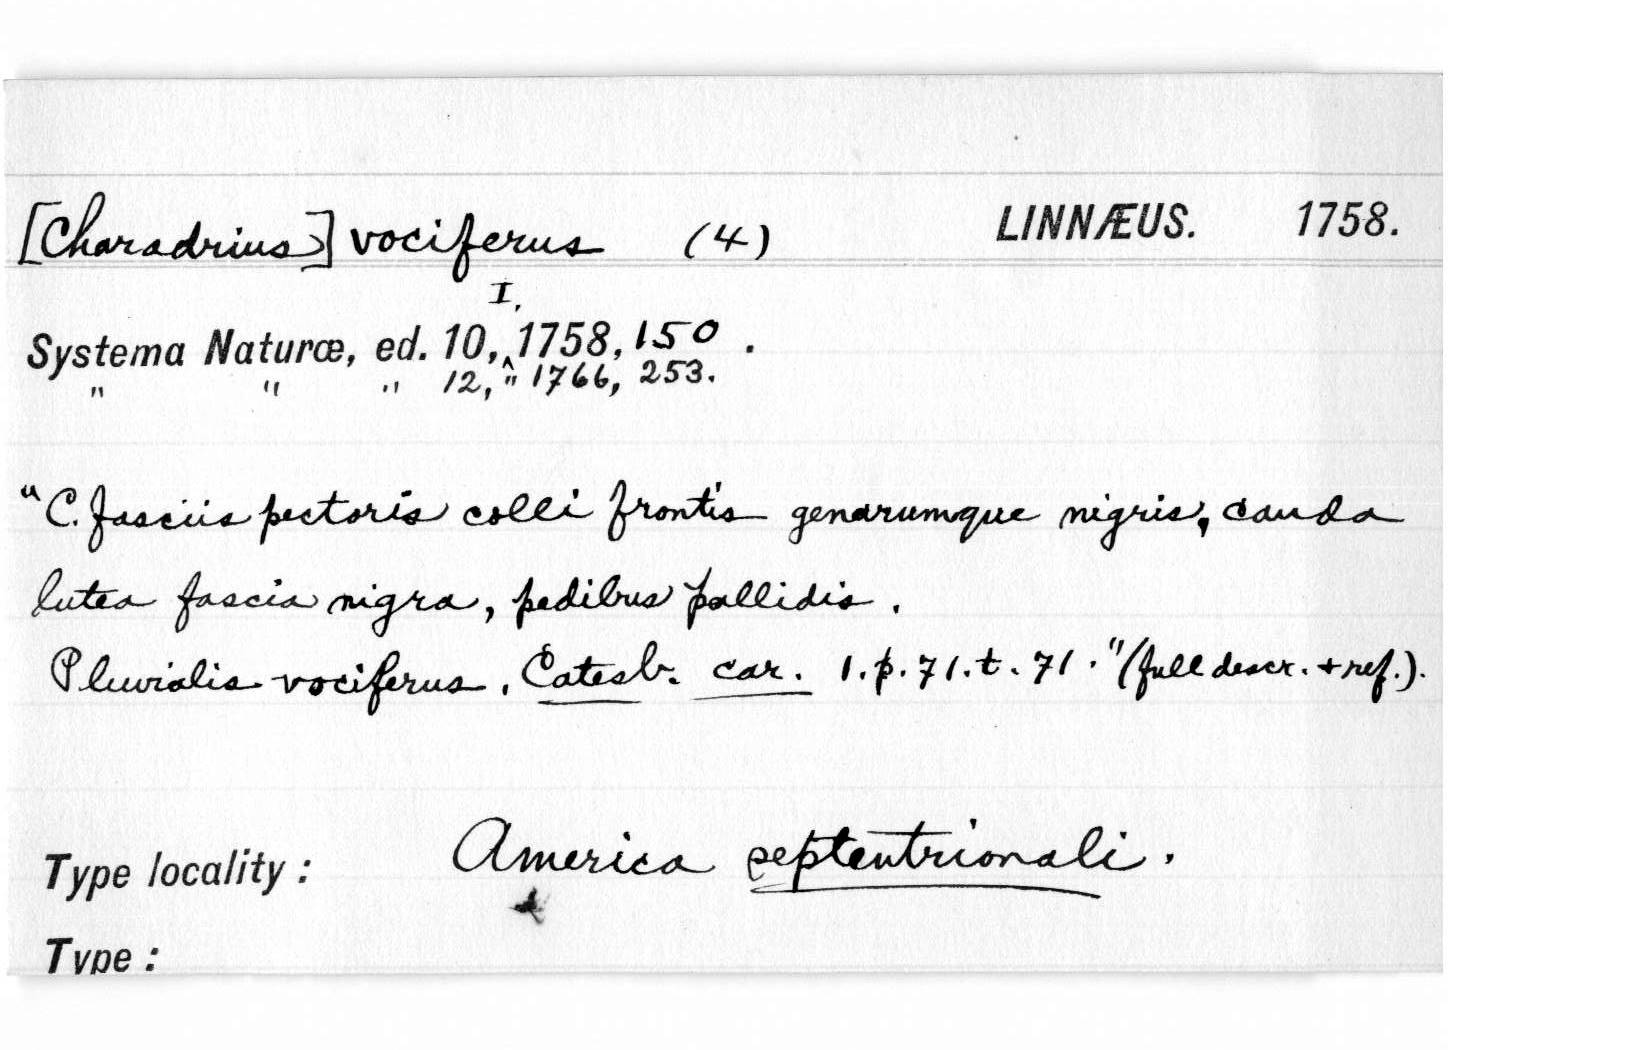 [Charadrius] vociferus (4) LINNÆUS. 1758.
I,
Systema Naturæ, ed. 10,‸1758, 150.
" " " 12, " 1766, 253.
"C. fasciis pectoris colli frontis genarumque nigris, cauda
lutea fascia nigra, pedibus pallidis.
Pluvialis vociferus. Catesb. car. 1. p. 71. t. 71." (full descr. + ref.).
Type locality: America septentrionali.
Type: